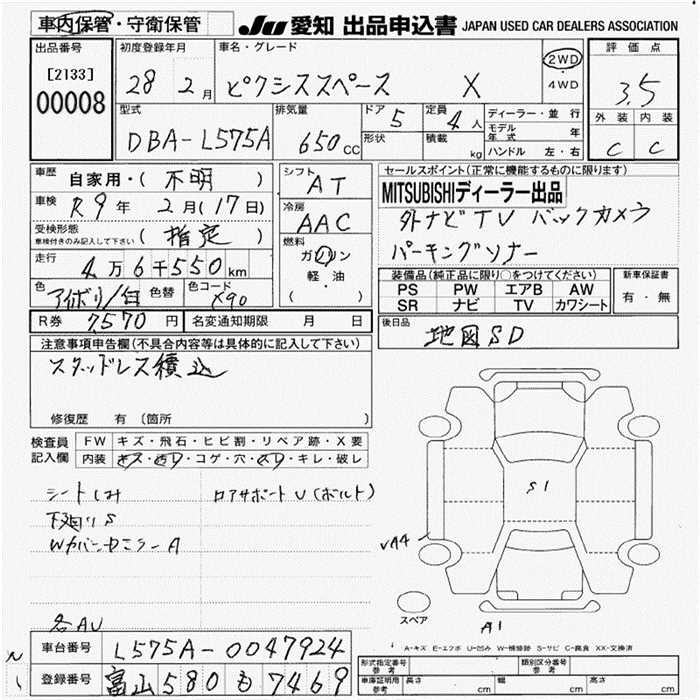 車内保管・守衛保管
JU 愛知 出品申込書 JAPAN USED CAR DEALERS ASSOCIATION
出品番号
[2133]
00008
初度登録年月
28年 2月
車名・グレード
ピクシススペース X
2WD・4WD
評価点
3.5
外装 内装
C C
型式
DBA-L575A
排気量
650cc
ドア 5
形状
定員 4人
積載 kg
ディーラー・並行
モデル年式 年
ハンドル 左・右
車歴 自家用・(不明)
車検 R9年 2月(17日)
受検形態
車検付きのみ記入して下さい (指定)
走行 4万6千550km
色 アイボリ/白 色替 色コード X90
シフト AT
冷房 AAC
燃料
ガソリン
軽・油
( )
セールスポイント(正常に機能するものに限ります)
MITSUBISHIディーラー出品
外ナビTV バックカメラ
パーキングソナー
装備品(純正品に限り○をつけてください)
PS PW エアB AW
SR ナビ TV カワシート
新車保証書
有・無
R券 7,570円 名変通知期限 月 日
後日品 地図SD
注意事項申告欄(不具合内容等は具体的に記入して下さい)
スタッドレス積込
修復歴 有(箇所 )
検査員記入欄
FW キズ・飛石・ヒビ割・リペア跡・X要
内装 キズ・汚れ・コゲ・穴・スレ・キレ・破レ
シートしみ ロアサポートU(ボルト)
下廻りS
各AU
S1
A1
スペア
A-キズ E-エクボ U-凹み W-補修跡 S-サビ C-腐食 XX-交換済
車台番号 L575A-0047924
登録番号 富山580も7469
形式指定番号 参考
類別区分番号 参考
車庫証明用 参考 長さ cm 幅 cm 高さ cm